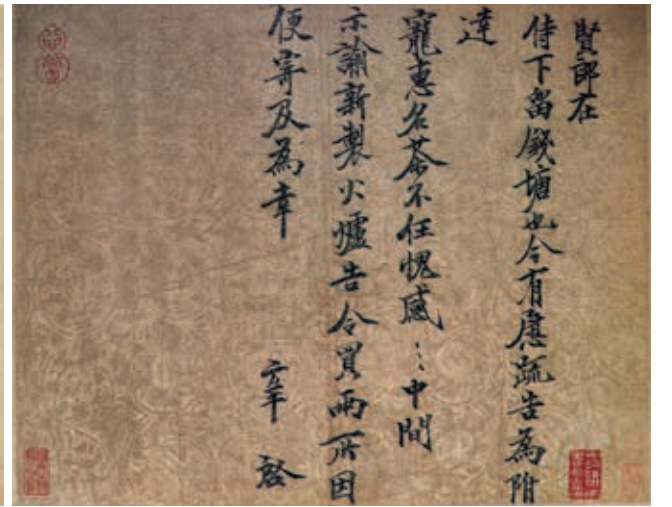 賢郎在
侍下留錢塘也今有慰疏告為附
達
寵惠名茶不任愧感〻中間
示諭新製火爐告令買兩所因
便寄及為幸